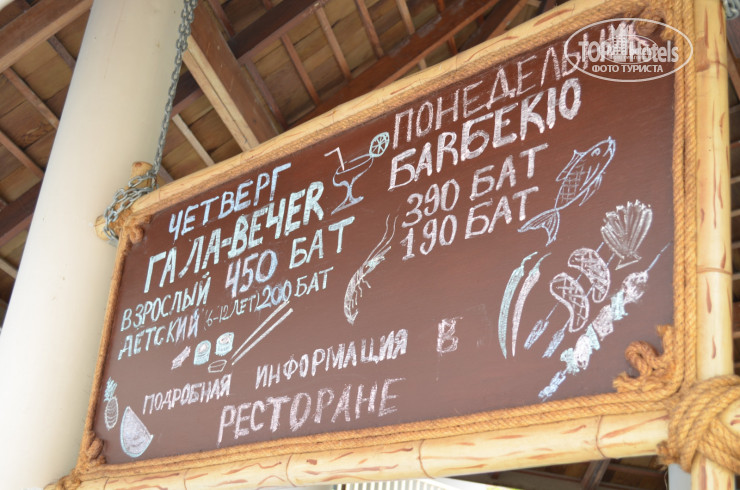 ЧЕТВЕРГ
ГАЛА-ВЕЧЕR
ВЗРОСЛЫЙ 450 БАТ
ДЕТСКИЙ (6-12 ЛЕТ) 200 БАТ
ПОНЕДЕЛЬНИК
БАRБЕКЮ
390 БАТ
190 БАТ
ПОДРОБНАЯ ИНФОРМАЦИЯ В
РЕСТОРАНЕ
TOPHotels
ФОТО ТУРИСТА